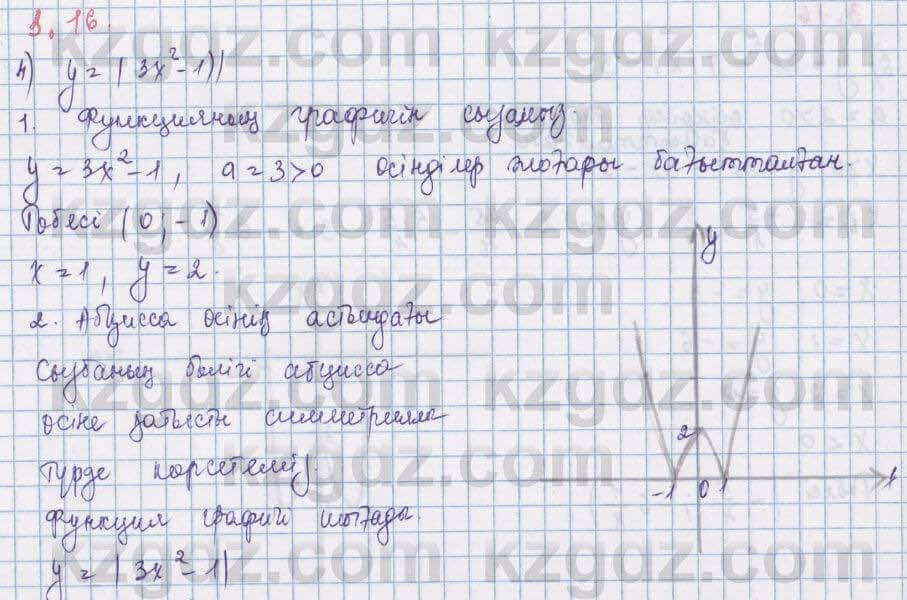 3.16.
4) y = |3x²-1)|
1. Функцияның графигін сызамыз.
y = 3x²-1, a=3>0 өсінділер жоғары бағытталған.
Төбесі (0;-1)
x=1, y=2.
2. Абцисса осінің астындағы
Сызбаның бөлігі абцисса
осіне қатысты симметриялы
түрде көрсетеміз.
Функция графигі шығады.
y = |3x²-1|
y
2
-1 0 1
kzgdz.com